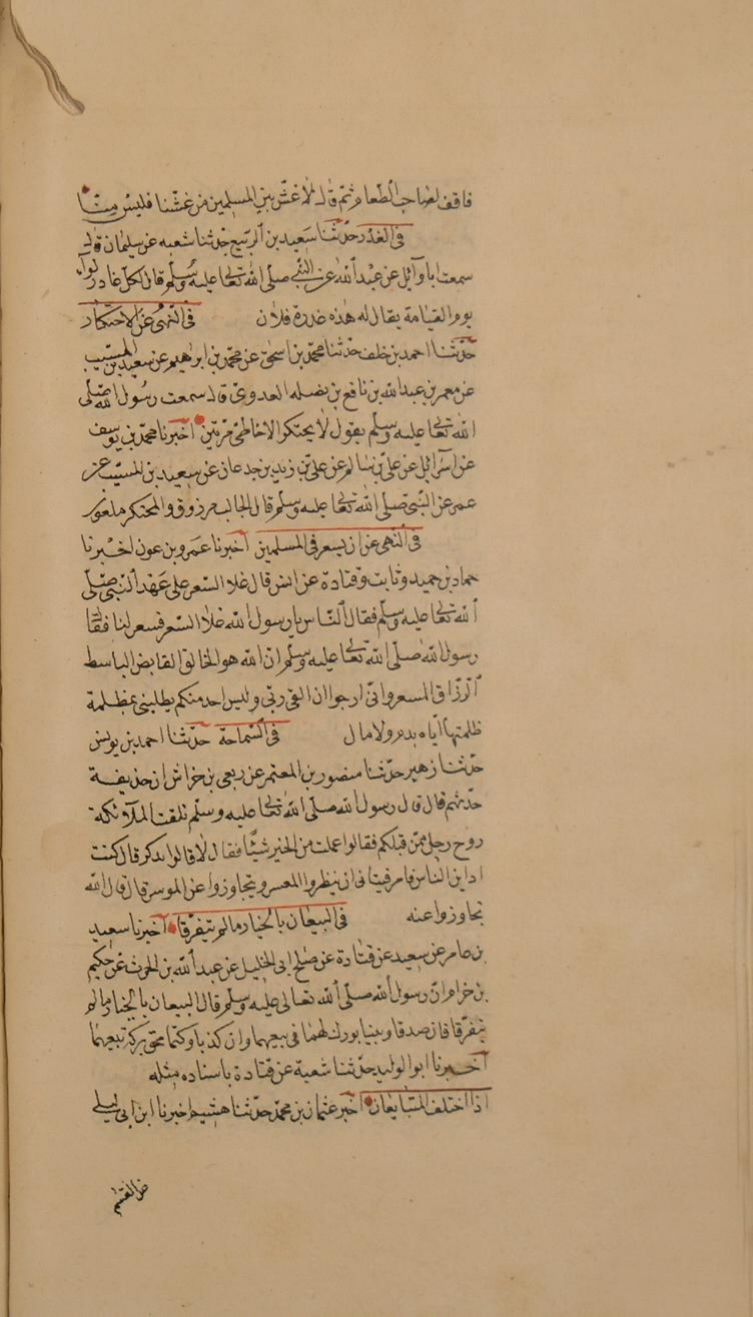 فاقف لصاحب الطعام ثم قال لا غش بين المسلمين من غشنا فليس منا
في الغدر حدثنا سعيد بن الربيع حدثنا شعبه عن سليمان قال
سمعت ابا وآئل عن عبد الله عن النبي صلى الله تعا عليه وسلم قال لكل غادر لوآء
يوم القيامة يقال له هذه غدرة فلان في النهى عن الاحتكار
حدثنا احمد بن خلف حدثنا محمد بن اسحق عن محمد بن ابراهيم عن سعيد بن المسيب
عن معمر بن عبد الله بن نافع بن نضله العدوي قال سمعت رسول الله صلى
الله تعا عليه وسلم يقول لا يحتكر الا خاطئ مرتين اخبرنا محمد بن يوسف
عن اسرآئل عن على بن سالم عن على بن زيد بن جدعان عن سعيد بن المسيب عن
عمر عن النبي صلى الله تعا عليه وسلم قال الجالب مرزوق والمحتكر ملعون
في النهى عن ان يسعر في المسلمين اخبرنا عمرو بن عون اخبرنا
حماد بن حميد وثابت وقتادة عن انس قال غلا السعر على عهد النبي صلى
الله تعا عليه وسلم فقال الناس يا رسول الله غلا السعر فسعر لنا فقال
رسول الله صلى الله تعا عليه وسلم ان الله هو الخالق القابض الباسط
الرزاق المسعر وانى ارجو ان القى ربي وليس احد منكم يطلبنى بمظلمة
ظلمتها اياه بدم ولا مال في السماحة حدثنا احمد بن يونس
حدثنا زهير حدثنا منصور بن المعتمر عن ربعى بن خراش ان حذيفة
حدثهم قال قال رسول الله صلى الله تعا عليه وسلم تلقت الملآئكة
روح رجل ممن قبلكم فقالوا عملت من الخير شيئا فقال لا قالوا تذكر قال كنت
اداين الناس فامر فتيانى ان ينظروا المعسر ويتجاوزوا عن الموسر قال قال الله
تجاوزوا عنه في البيعان بالخيار مالم يتفرقا اخبرنا سعيد
بن عامر عن سعيد عن قتادة عن صلح ابى الخليل عن عبد الله بن الحرث عن حكيم
بن خزام ان رسول الله صلى الله تعالى عليه وسلم قال البيعان بالخيار مالم
يتفرقا فان صدقا وبينا بورك لهما في بيعهما وان كذبا وكتما محق بركة بيعهما
اخبرنا ابو الوليد حدثنا شعبة عن قتادة باسناده مثله
اذا اختلف المتبايعان اخبر عثمان بن محمد حدثنا هشيم اخبرنا ابن ابى ليلى
عن القسم